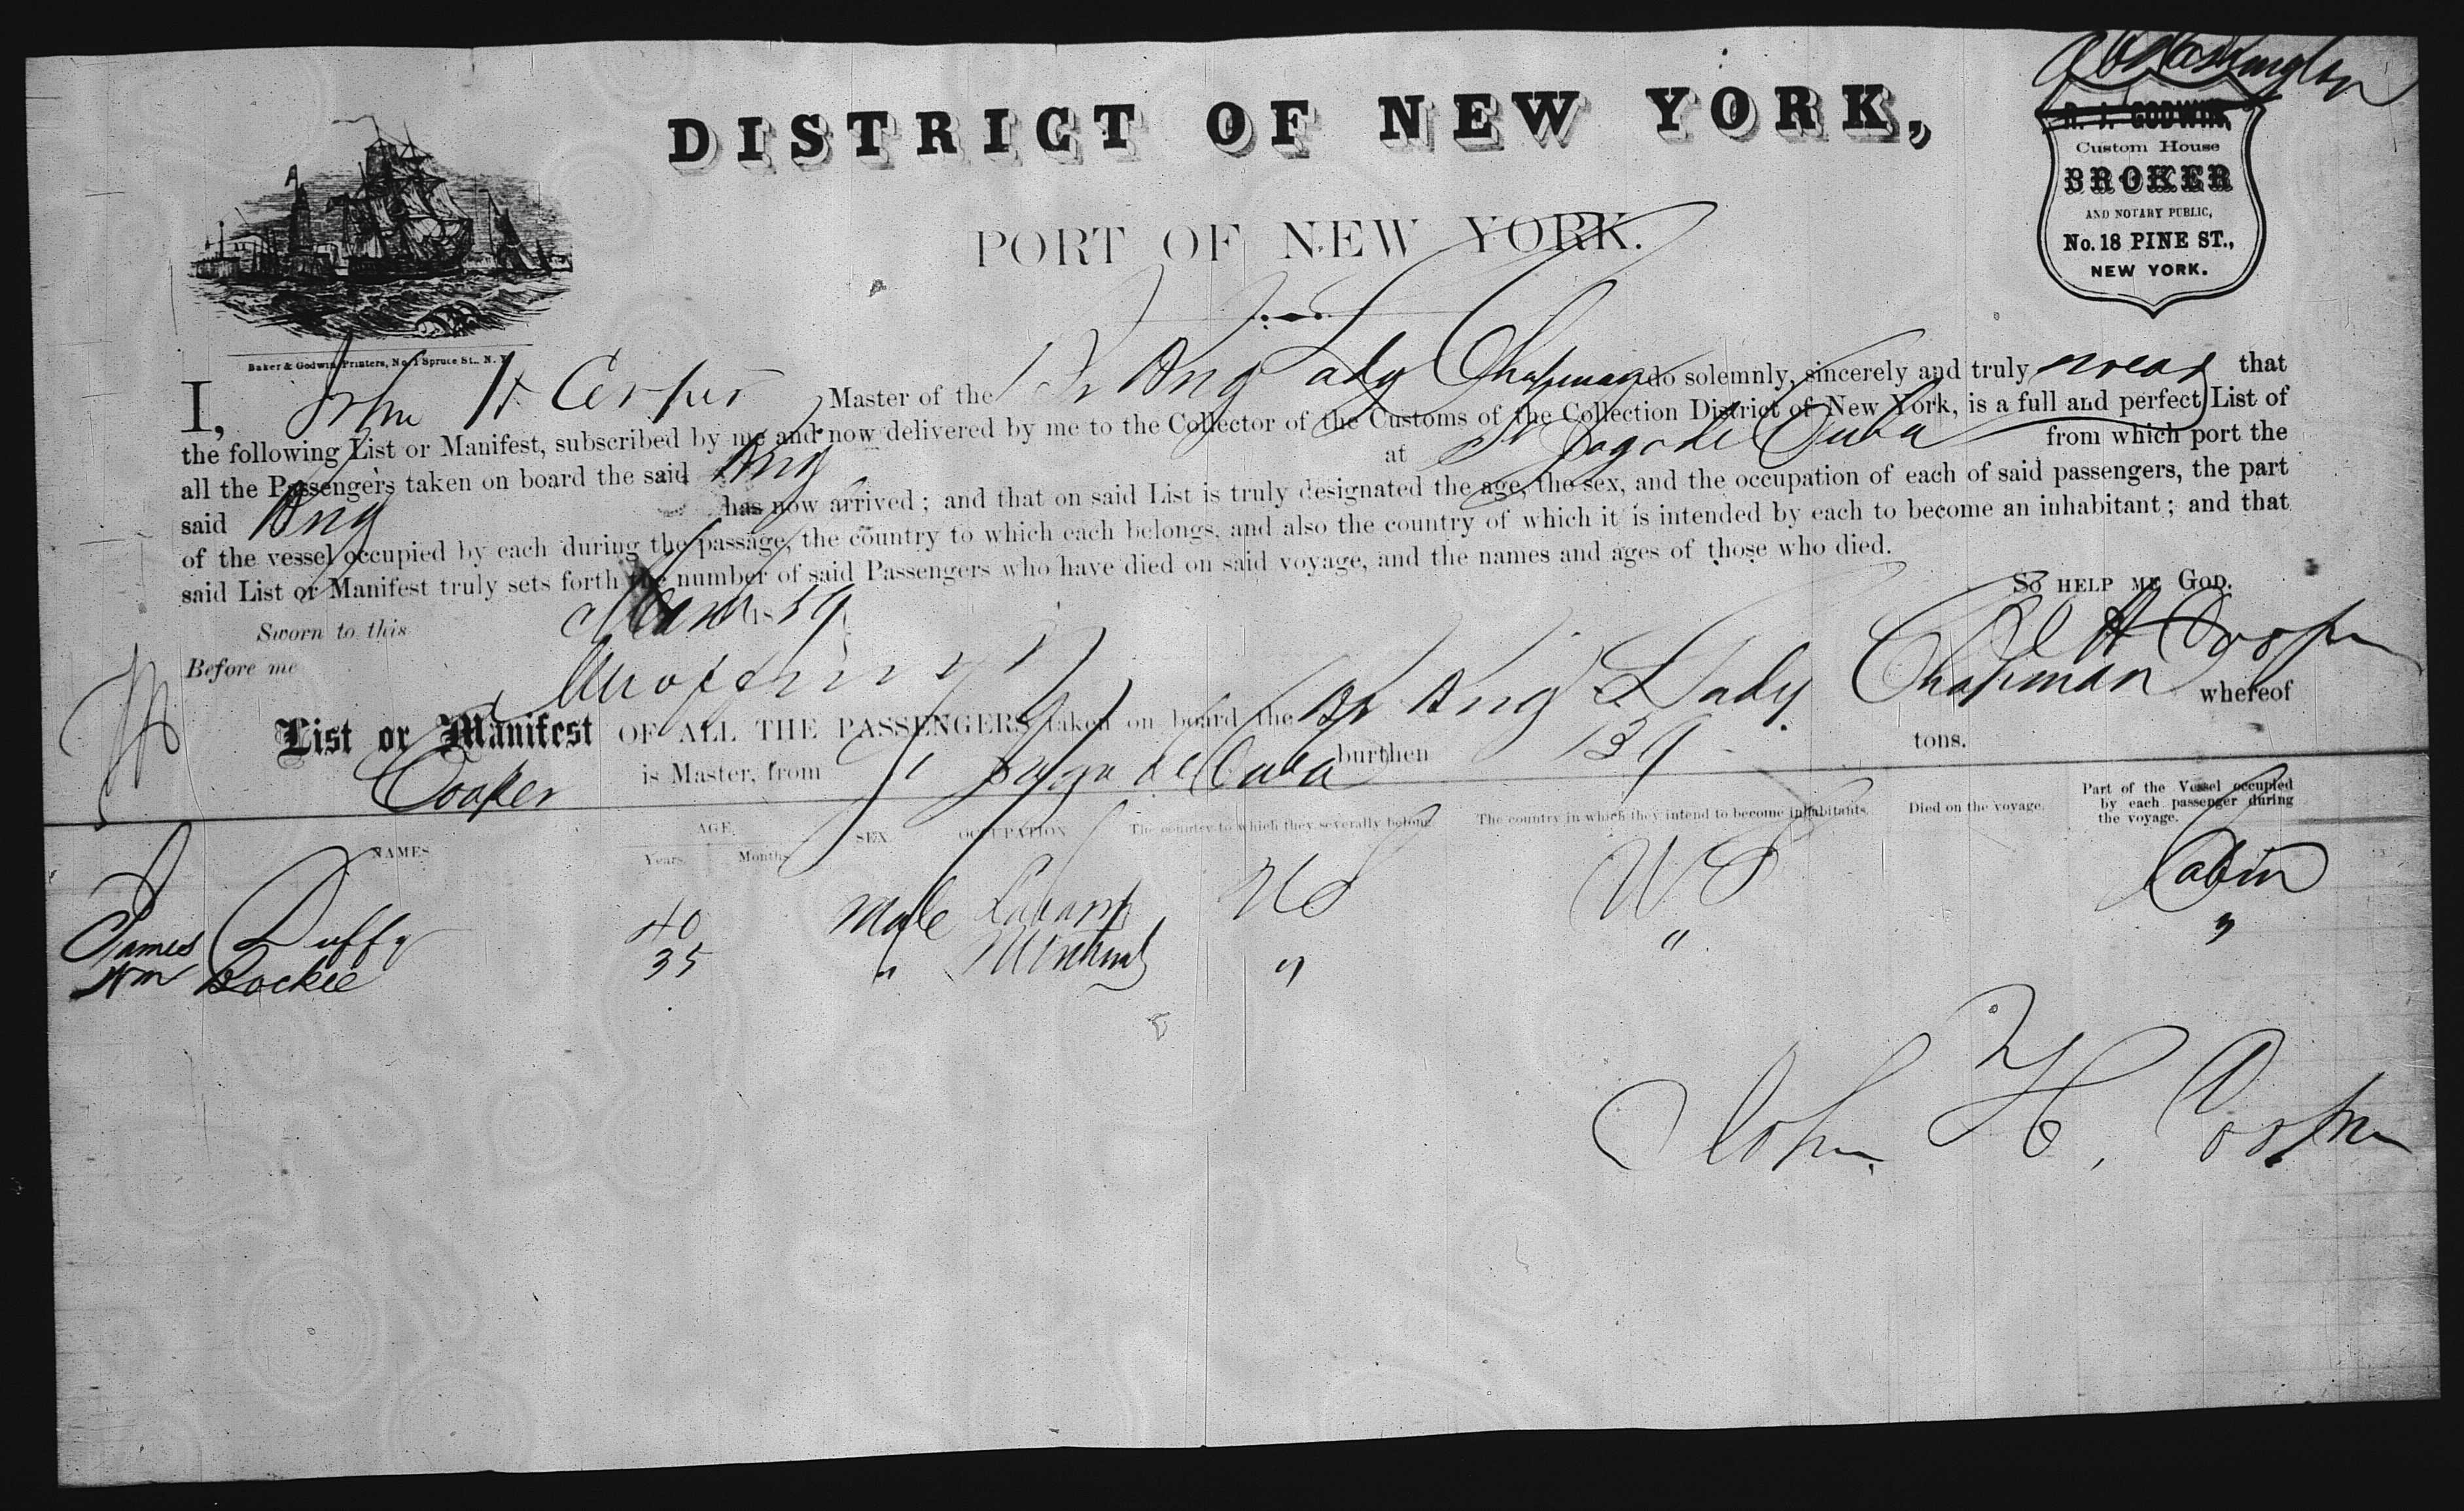 DISTRICT OF NEW YORK,
PORT OF NEW YORK.
R. J. GODWIN,
Custom House
BROKER
AND NOTARY PUBLIC,
No. 18 PINE ST.,
NEW YORK.
Baker & Godwin, Printers, No. 1 Spruce St., N. Y.
I, John H Cooper Master of the Br Brig Lady Chapman do solemnly, sincerely and truly swear that
the following List or Manifest, subscribed by me and now delivered by me to the Collector of the Customs of the Collection District of New York, is a full and perfect List of
all the Passengers taken on board the said Brig at St Jago de Cuba from which port the
said Brig has now arrived; and that on said List is truly designated the age, the sex, and the occupation of each of said passengers, the part
of the vessel occupied by each during the passage, the country to which each belongs, and also the country of which it is intended by each to become an inhabitant; and that
said List or Manifest truly sets forth the number of said Passengers who have died on said voyage, and the names and ages of those who died.
So HELP ME GOD.
Sworn to this 1859
J H Cooper
Before me
List or Manifest OF ALL THE PASSENGERS taken on board the Br Brig Lady Chapman whereof
Cooper is Master, from St Jago de Cuba burthen 139 tons.
NAMES AGE. Years. Months SEX OCCUPATION The country to which they severally belong. The country in which they intend to become inhabitants. Died on the voyage. Part of the Vessel occupied by each passenger during the voyage.
James Duffy 40 Male US US Cabin
Wm Bockie 35 " Merchant " " "
John H. Cooper